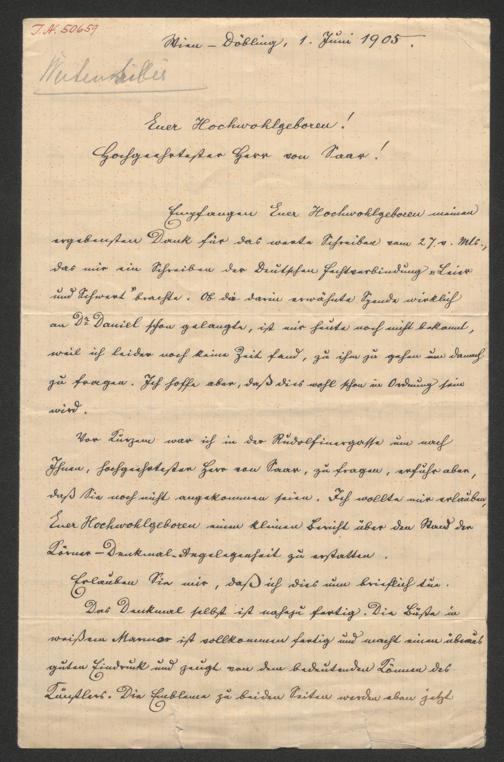 I.N. 50659
Wien – Döbling, 1. Juni 1905.
Euer Hochwohlgeboren!
Hochgeehrtester Herr von Saar!
Empfangen Euer Hochwohlgeboren meinen
ergebensten Dank für das werte Schreiben vom 27. v. Mts.,
das mir ein Schreiben der Deutschen Fechtverbindung „Leier
und Schwert" brachte. Ob die darin erwähnte Spende wirklich
an Dr. Daniel schon gelangte, ist mir heute noch nicht bekannt,
weil ich leider noch keine Zeit fand, zu ihm zu gehen um danach
zu fragen. Ich hoffe aber, daß dies wohl schon in Ordnung sein
wird.
Vor Kurzem war ich in der Rudolfinergasse um nach
Ihnen, hochgeehrtester Herr von Saar, zu fragen, erfuhr aber,
daß Sie noch nicht angekommen seien. Ich wollte mir erlauben,
Euer Hochwohlgeboren einen kleinen Bericht über den Stand der
Körner-Denkmal-Angelegenheit zu erstatten.
Erlauben Sie mir, daß ich dies nun brieflich tue.
Das Denkmal selbst ist nahezu fertig. Die Büste in
weißem Marmor ist vollkommen fertig und macht einen überaus
guten Eindruck und zeugt von dem bedeutenden Können des
Künstlers. Die Embleme zu beiden Seiten werden eben jetzt